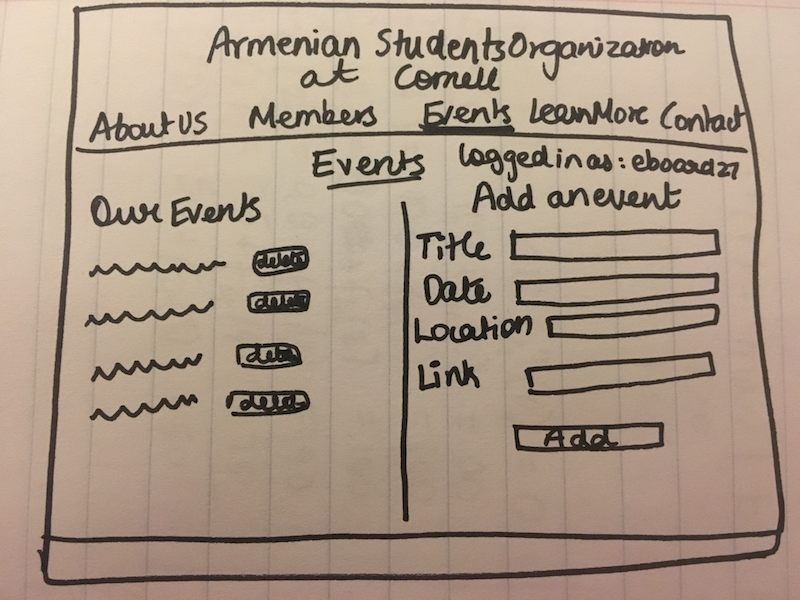 Armenian Students Organization
at Cornell
About US Members Events Learn More Contact
Events
logged in as: eboard27
Our Events
delete
delete
delete
delete
Add an event
Title
Date
Location
Link
Add